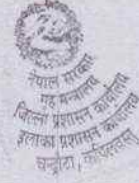 नेपाल सरकार
गृह मन्त्रालय
जिल्ला प्रशासन कार्यालय
इलाका प्रशासन कार्यालय
चन्द्रौटा, कपिलवस्तु